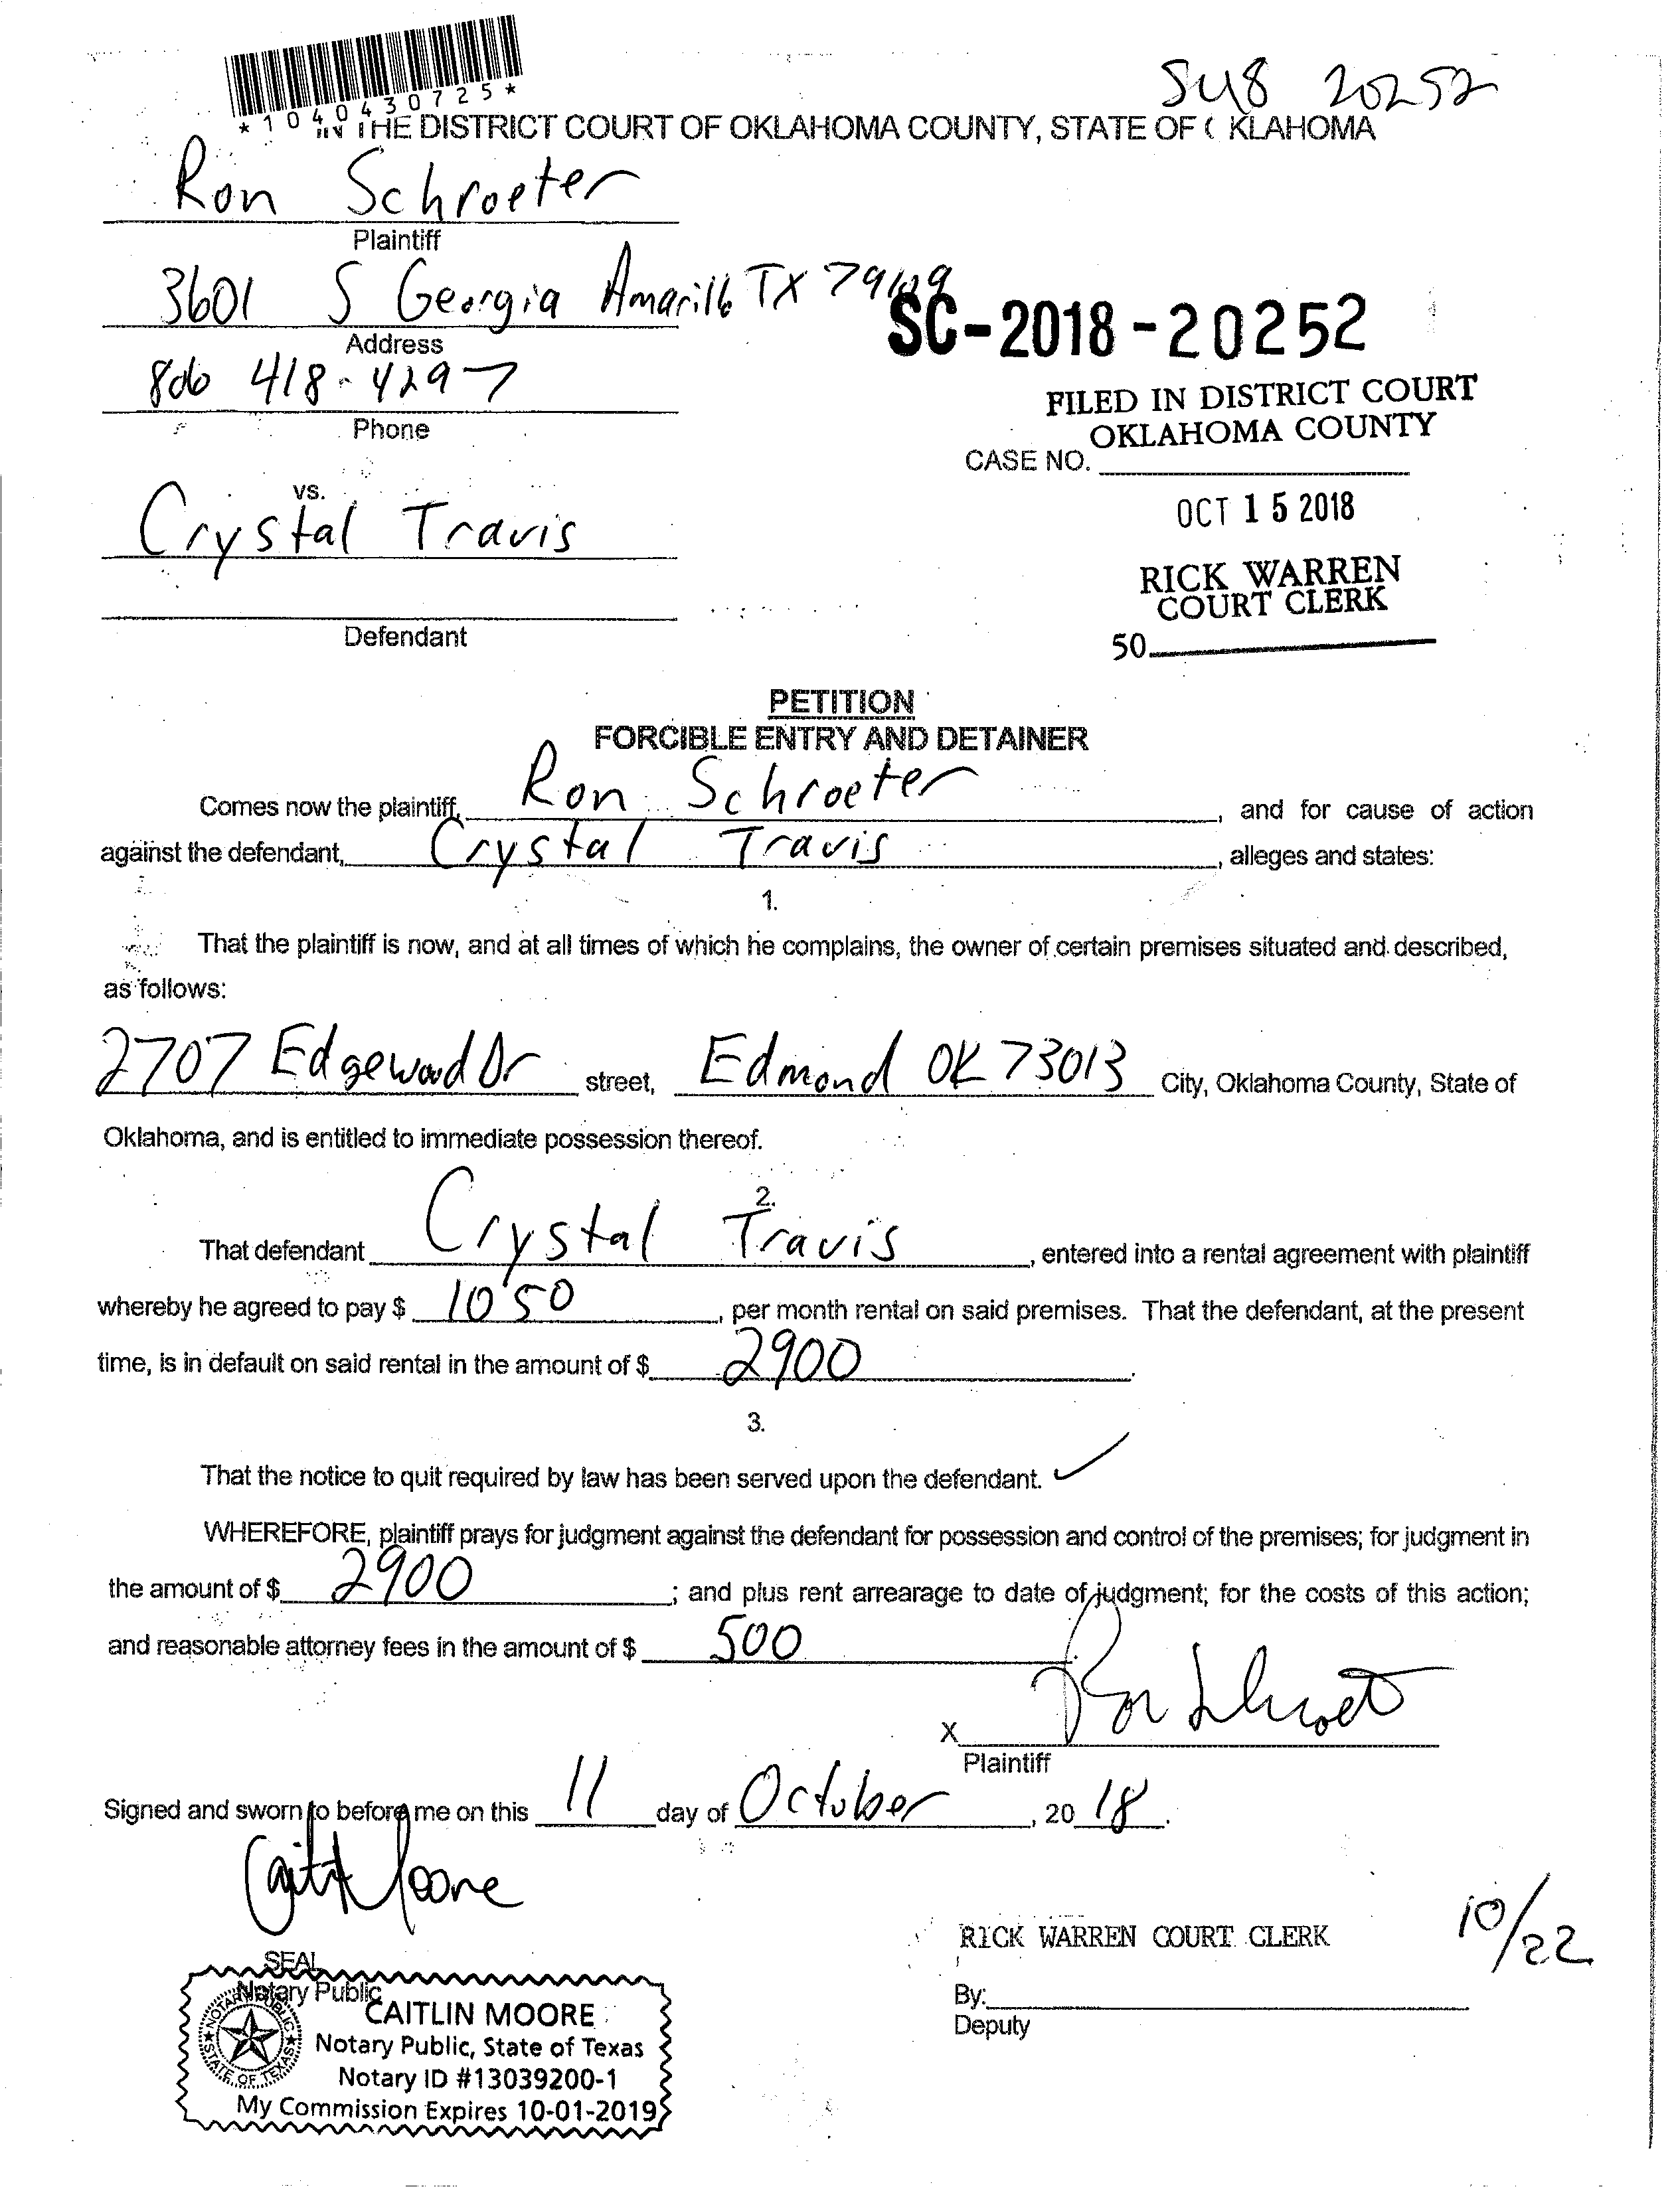 *1040430725*
SC18 20252
IN THE DISTRICT COURT OF OKLAHOMA COUNTY, STATE OF ( KLAHOMA
Ron Schroeter
Plaintiff
3601 S Georgia Amarillo TX 79109
Address
SC-2018-20252
806 418-4297
Phone
FILED IN DISTRICT COURT
OKLAHOMA COUNTY
CASE NO.
vs.
Crystal Travis
OCT 15 2018
RICK WARREN
COURT CLERK
Defendant
50
PETITION
FORCIBLE ENTRY AND DETAINER
Comes now the plaintiff, Ron Schroeter, and for cause of action
against the defendant, Crystal Travis, alleges and states:
1.
That the plaintiff is now, and at all times of which he complains, the owner of certain premises situated and described,
as follows:
2707 Edgewood Dr street, Edmond OK 73013 City, Oklahoma County, State of
Oklahoma, and is entitled to immediate possession thereof.
2.
That defendant Crystal Travis, entered into a rental agreement with plaintiff
whereby he agreed to pay $ 1050, per month rental on said premises. That the defendant, at the present
time, is in default on said rental in the amount of $ 2900.
3.
That the notice to quit required by law has been served upon the defendant. ✓
WHEREFORE, plaintiff prays for judgment against the defendant for possession and control of the premises; for judgment in
the amount of $ 2900; and plus rent arrearage to date of judgment; for the costs of this action;
and reasonable attorney fees in the amount of $ 500.
X Ron Schroet
Plaintiff
Signed and sworn to before me on this 11 day of October, 20 18.
Caitlin Moore
10/22
RICK WARREN COURT CLERK
SEAL
Notary Public
By:
Deputy
CAITLIN MOORE
Notary Public, State of Texas
Notary ID #13039200-1
My Commission Expires 10-01-2019
NOTARY PUBLIC
STATE OF TEXAS